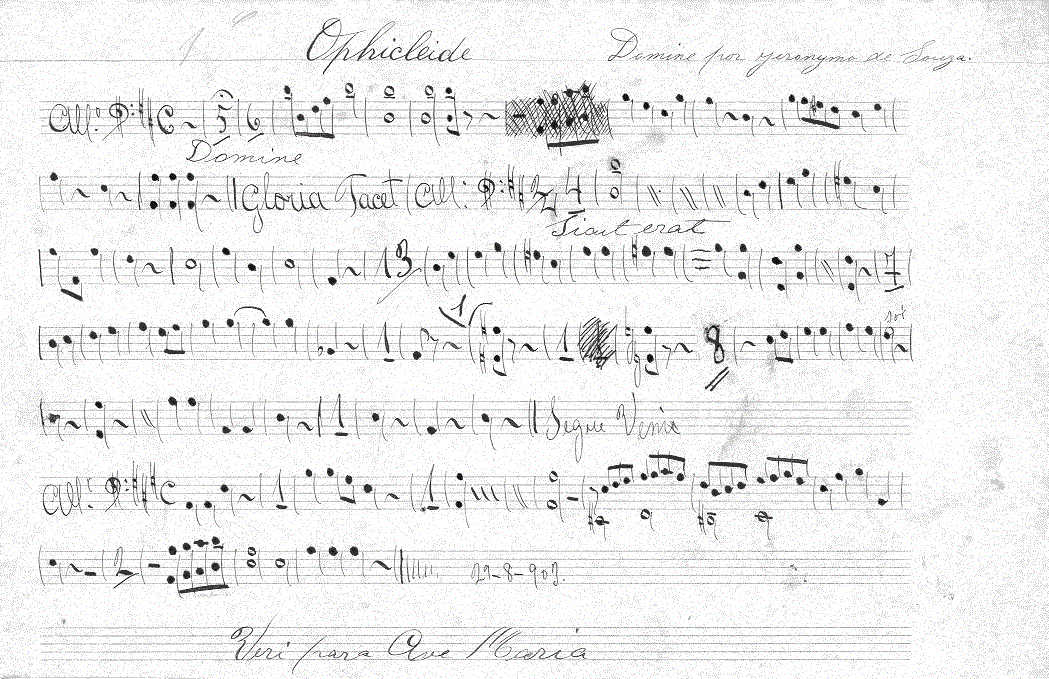 Ophicleide Domine por jeronymo de Souza.
All: C 5 6
Domine
Gloria Tacet All: 2/4
Sicut erat
13 7
1 1 8 sol
1 Segue Veni
All: C 1 1
2 29-8-903.
Veri para Ave Maria